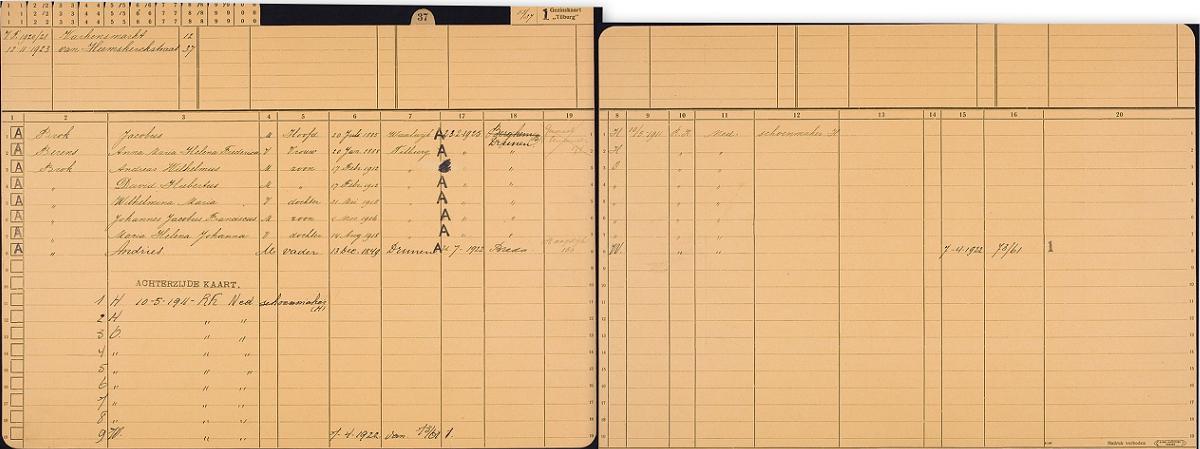 37
1 Gezinskaart
„Tilburg"
V.T. 1920/21 Varkensmarkt 12
12 11 1923 van Heemskerckstraat 37
1 2 3 4 5 6 7 17 18 19
1 A Brok Jacobus M Hoofd 20 Juli 1885 Waalwijk A 23.2.1925 Drunen
2 A Berens Anna Maria Helena Frederica V Vrouw 20 Jan. 1888 Tilburg A "
3 A Brok Andreas Wilhelmus M zoon 17 Febr. 1912 " "
4 A " David Hubertus M " 17 Febr. 1912 " A "
5 A " Wilhelmina Maria V dochter 21 Mei 1913 " A "
6 A " Johannes Jacobus Franciscus M zoon 1916 " A "
7 A " Maria Helena Johanna V dochter 14 Aug 1918 " A "
8 A " Andries M vader 13 Dec. 1849 Drunen A 7-1922 Breda
ACHTERZIJDE KAART.
1 H 10-5-1911- RK Ned schoenmaker (H)
2 H " "
3 O " "
4 " " "
5 " " "
6 " " "
7 " " "
8 " " "
9 W. " " 7-4-1922 van 73/61 1.
8 9 10 11 12 13 14 15 16 20
1 H 10/5 1911 R.K. Ned. schoenmaker H
2 H " "
3 O " "
4 " " "
5 " " "
6 " " "
7 " " "
8 W. " " 7-4-1922 73/61 1
Nadruk verboden